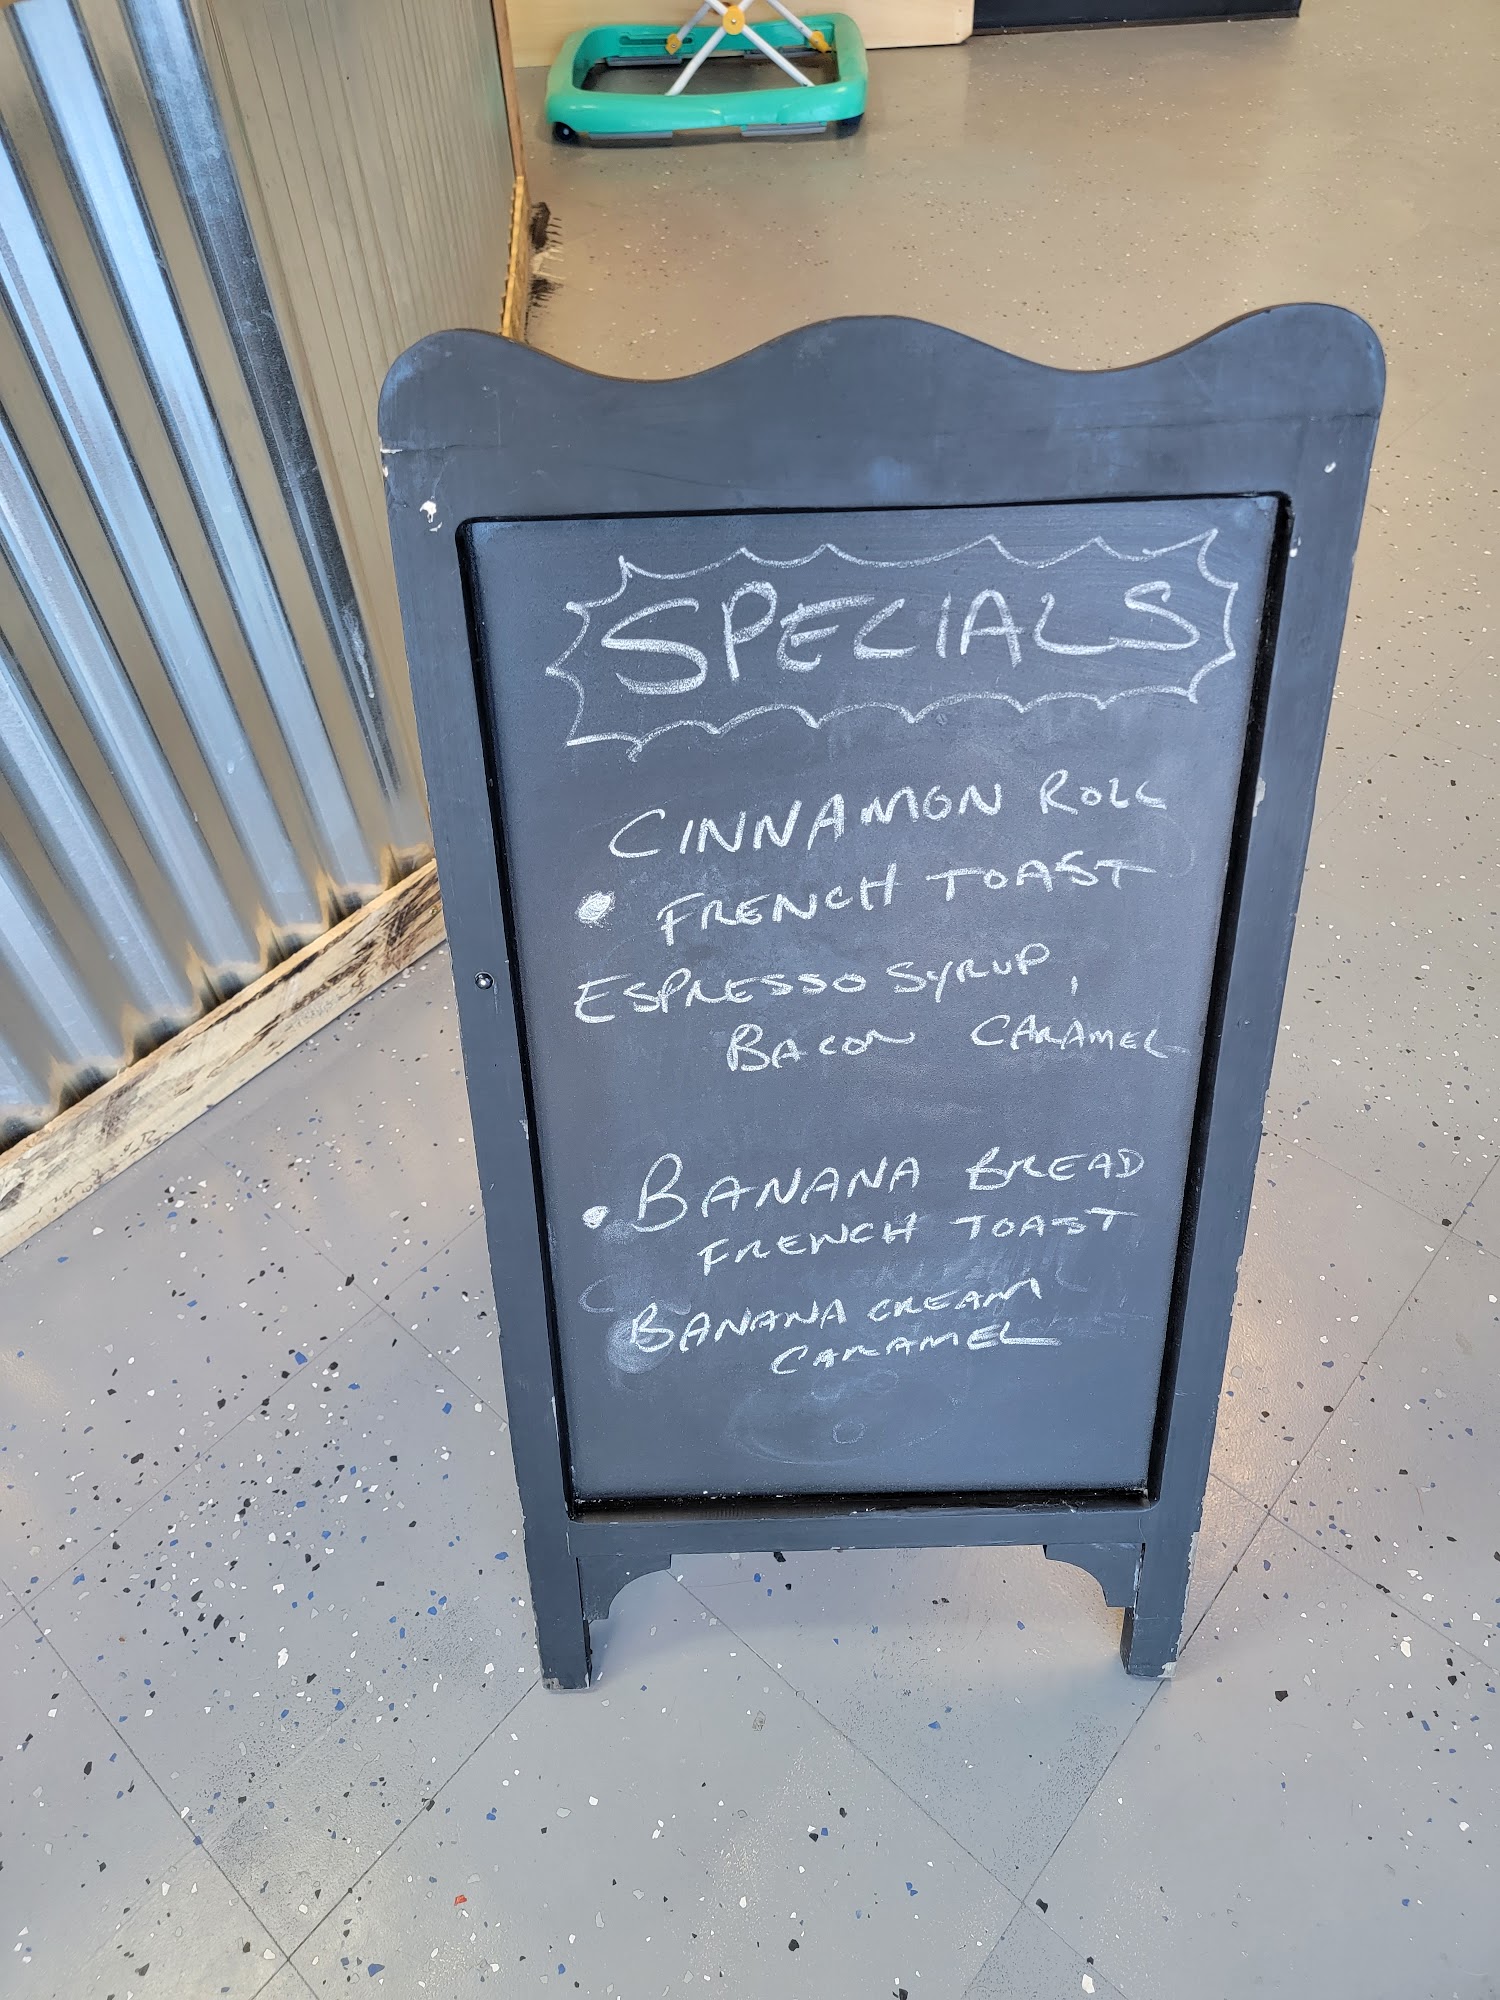 SPECIALS
CINNAMON ROLL
• FRENCH TOAST
ESPRESSO SYRUP,
BACON CARAMEL
• BANANA BREAD
FRENCH TOAST
BANANA CREAM
CARAMEL